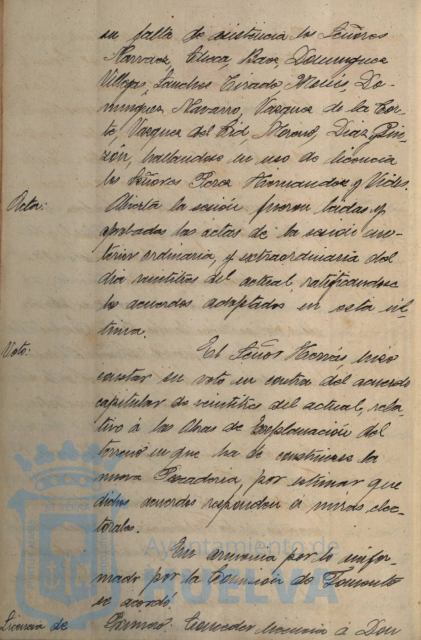 su falta de asistencia los Señores
Narvaez, Checa, Baos, Dominguez
Villegas, Sanchez Tirado, Macís, Do-
minguez Navarro, Vazquez de la Cor-
te, Vazquez del Cid, Moreno, Diaz y Pin-
zón, hallandose en uso de licencia
los Señores Perez Hernandez y Vides.
Acta: Abierta la sesión fueron leidas y
aprobadas las actas de la sesión an-
terior ordinaria, y extraordinaria del
dia veintitres del actual, ratificandose
los acuerdos adoptados en esta úl-
tima.
Voto: El Señor hizo
constar su voto en contra del acuerdo
capitular de veintitres del actual, rela-
tivo á las Obras de Explanación del
terreno en que ha de construirse la
nueva Pescaderia, por estimar que
dichos acuerdos responden á miras elec-
torales.
En armonia por lo infor-
mado por la Comisión de Fomento
se acordó
Licencia de Primero: Conceder licencia á Don
Ayuntamiento de
HUELVA